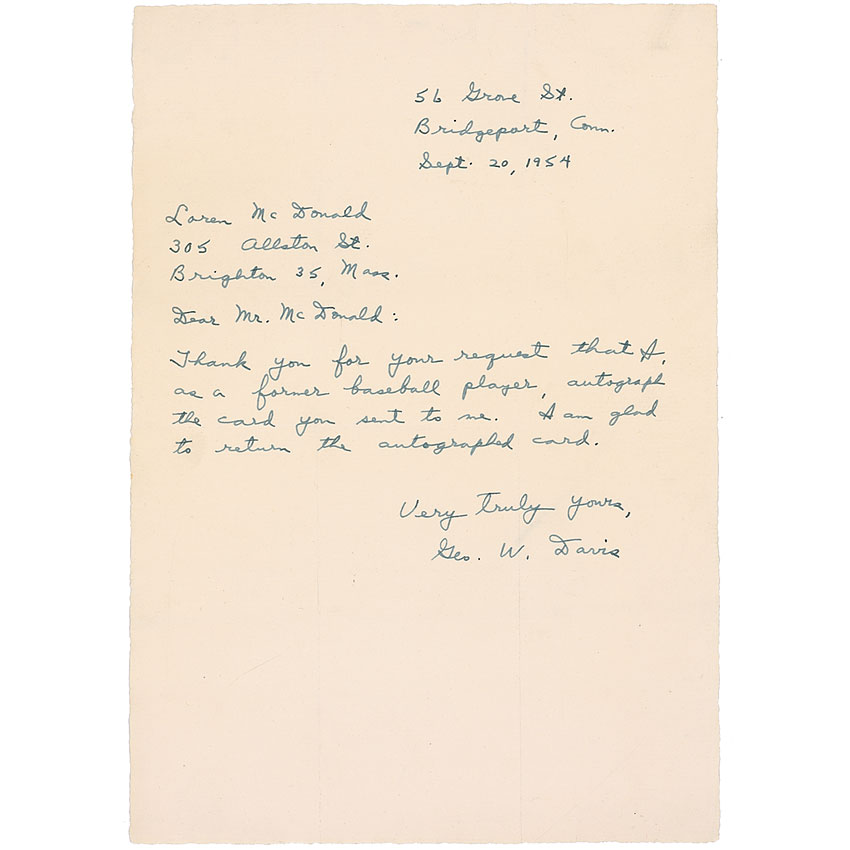 56 Grove St.
Bridgeport, Conn.
Sept. 20, 1954
Loren Mc Donald
305 Allston St.
Brighton 35, Mass.
Dear Mr. Mc Donald:
Thank you for your request that I,
as a former baseball player, autograph
the card you sent to me. I am glad
to return the autographed card.
Very truly yours,
Geo. W. Davis